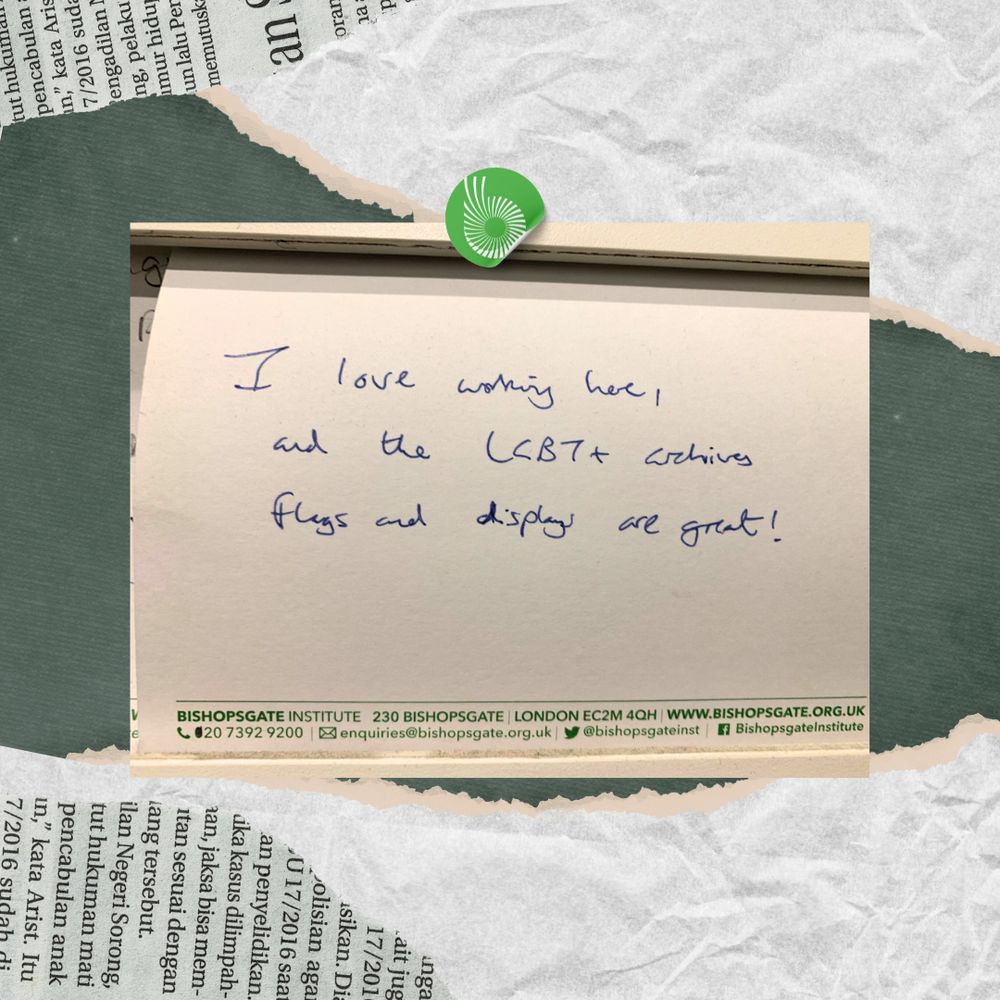 tut hukuman
pencabulan a
n,” kata Aris
7/2016 suda
engadilan N
ng, pelaku
mur hidup
un lalu Per
memutusk
I love working here,
and the LGBT+ archives
flags and displays are great!
BISHOPSGATE INSTITUTE 230 BISHOPSGATE | LONDON EC2M 4QH | WWW.BISHOPSGATE.ORG.UK
020 7392 9200 | enquiries@bishopsgate.org.uk | @bishopsgateinst | BishopsgateInstitute
ait jug
17/201
isikan. Dia
polisian aga
U 17/2016 saa
an penyelidikan.
ika kasus dilimpah-
aan, jaksa bisa mem-
itan sesuai dengan
lang tersebut.
ilan Negeri Sorong,
tut hukuman mati
pencabulan anak
n,” kata Arist. Itu
7/2016 sudah di